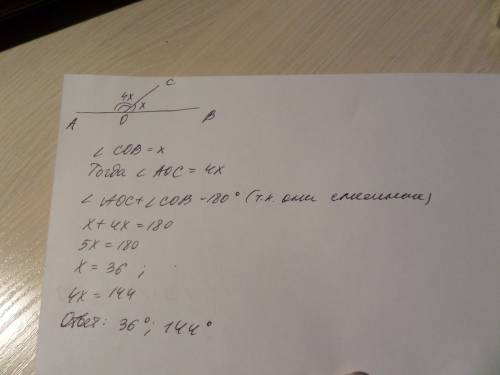 C
4x x
A O B
∠ COB = x
Тогда ∠ AOC = 4x
∠ AOC + ∠ COB - 180° (т.к. они смежные)
x + 4x = 180
5x = 180
x = 36 ;
4x = 144
Ответ: 36°; 144°